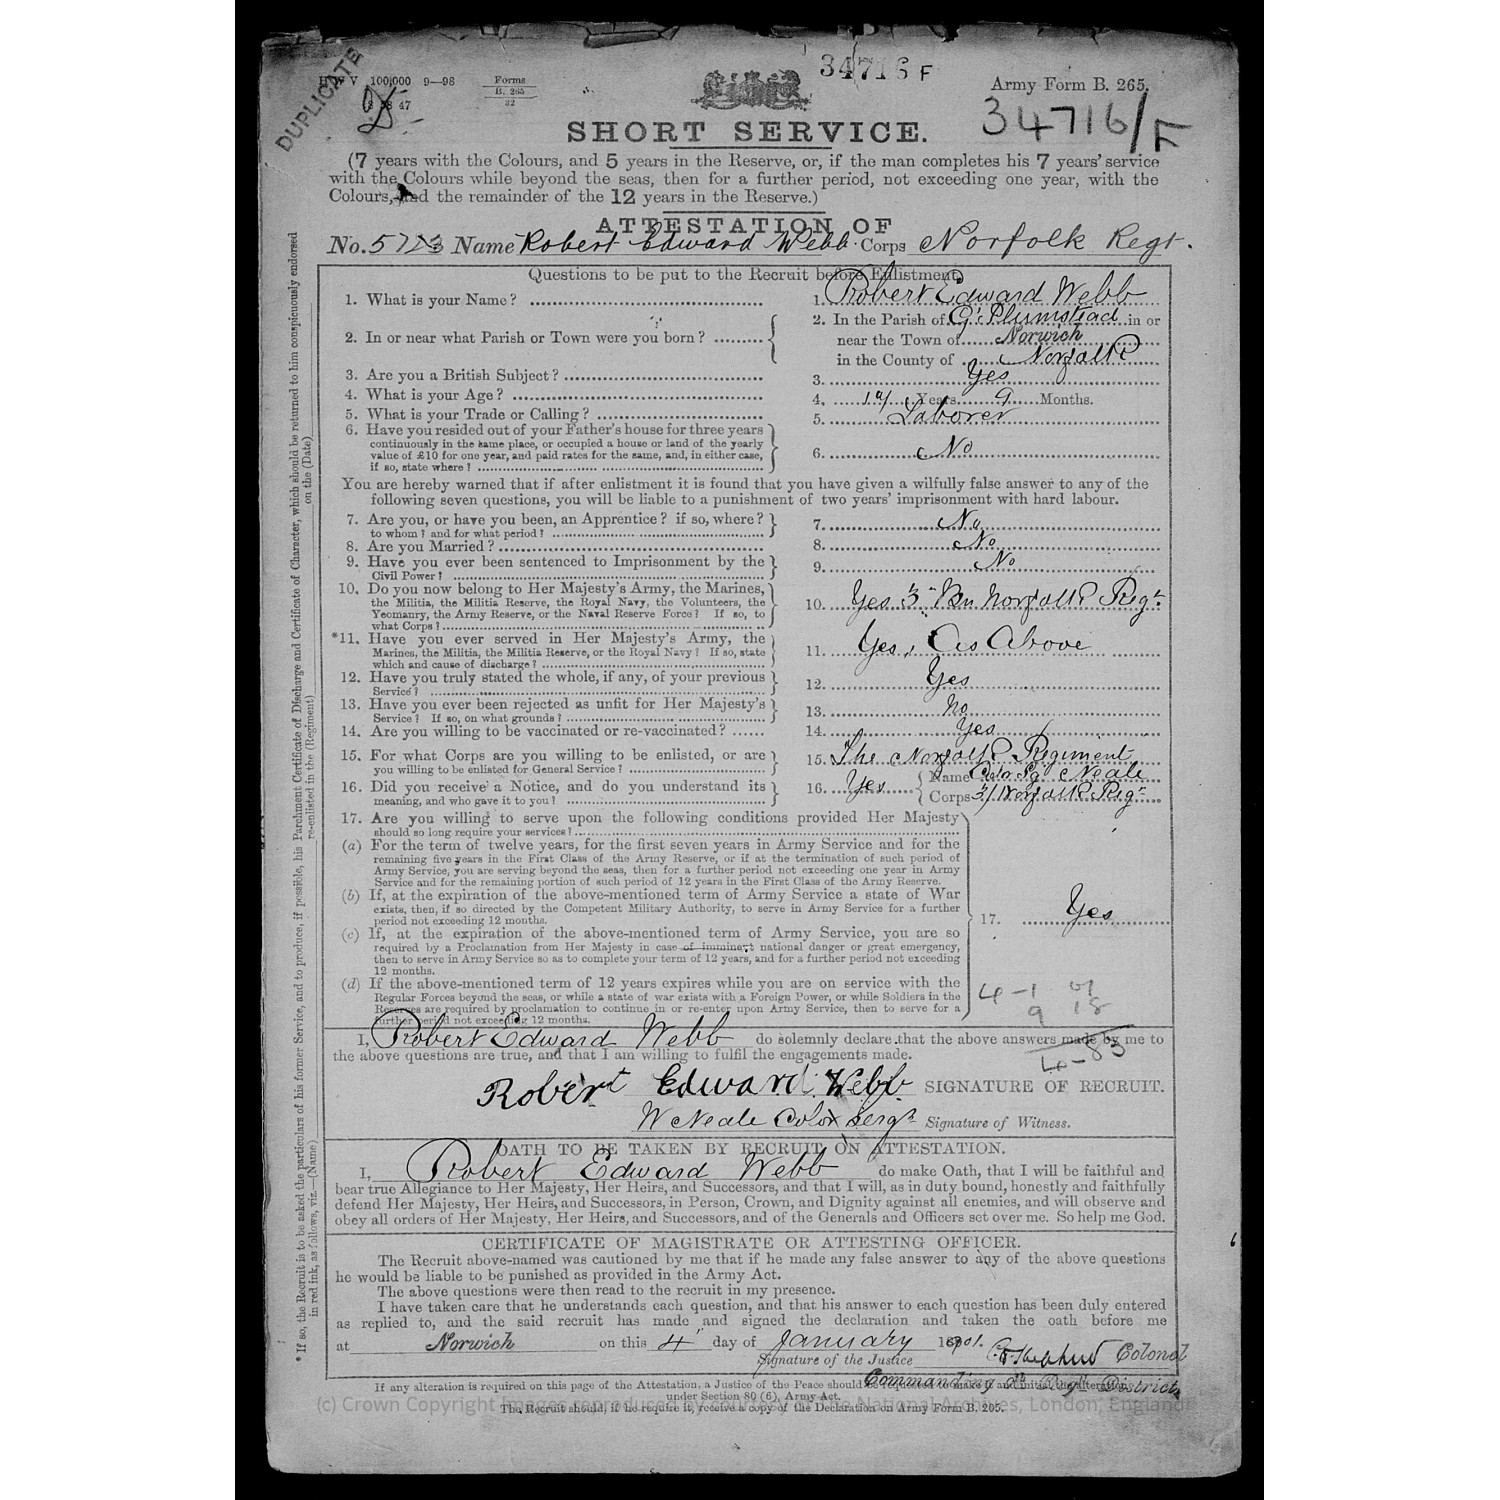 DUPLICATE
H W V 100,000 9—98 Forms B. 265 32
34716 F
Army Form B. 265.
34716/F
SHORT SERVICE.
(7 years with the Colours, and 5 years in the Reserve, or, if the man completes his 7 years' service
with the Colours while beyond the seas, then for a further period, not exceeding one year, with the
Colours, and the remainder of the 12 years in the Reserve.)
ATTESTATION OF
No. 5723 Name Robert Edward Webb. Corps Norfolk Regt.
Questions to be put to the Recruit before Enlistment.
1. What is your Name? 1. Robert Edward Webb
2. In or near what Parish or Town were you born? 2. In the Parish of Gt Plumstead in or
near the Town of Norwich
in the County of Norfolk
3. Are you a British Subject? 3. Yes
4. What is your Age? 4. Years 9 Months.
5. What is your Trade or Calling? 5. Laborer
6. Have you resided out of your Father's house for three years
continuously in the same place, or occupied a house or land of the yearly
value of £10 for one year, and paid rates for the same, and, in either case,
if so, state where? 6. No
You are hereby warned that if after enlistment it is found that you have given a wilfully false answer to any of the
following seven questions, you will be liable to a punishment of two years' imprisonment with hard labour.
7. Are you, or have you been, an Apprentice? if so, where?
to whom? and for what period? 7. No
8. Are you Married? 8. No
9. Have you ever been sentenced to Imprisonment by the
Civil Power? 9. No
10. Do you now belong to Her Majesty's Army, the Marines,
the Militia, the Militia Reserve, the Royal Navy, the Volunteers, the
Yeomanry, the Army Reserve, or the Naval Reserve Force? If so, to
what Corps? 10. Yes 3rd Bn Norfolk Regt
*11. Have you ever served in Her Majesty's Army, the
Marines, the Militia, the Militia Reserve, or the Royal Navy? If so, state
which and cause of discharge? 11. Yes, As Above
12. Have you truly stated the whole, if any, of your previous
Service? 12. Yes
13. Have you ever been rejected as unfit for Her Majesty's
Service? If so, on what grounds? 13. No
14. Are you willing to be vaccinated or re-vaccinated? 14. Yes
15. For what Corps are you willing to be enlisted, or are
you willing to be enlisted for General Service? 15. The Norfolk Regiment
16. Did you receive a Notice, and do you understand its
meaning, and who gave it to you? 16. Yes Name Colr Sg Neale
Corps 3/Norfolk Regt
17. Are you willing to serve upon the following conditions provided Her Majesty
should so long require your services?
(a) For the term of twelve years, for the first seven years in Army Service and for the
remaining five years in the First Class of the Army Reserve, or if at the termination of such period of
Army Service, you are serving beyond the seas, then for a further period not exceeding one year in Army
Service and for the remaining portion of such period of 12 years in the First Class of the Army Reserve.
(b) If, at the expiration of the above-mentioned term of Army Service a state of War
exists, then, if so directed by the Competent Military Authority, to serve in Army Service for a further
period not exceeding 12 months.
17. Yes
(c) If, at the expiration of the above-mentioned term of Army Service, you are so
required by a Proclamation from Her Majesty in case of imminent national danger or great emergency,
then to serve in Army Service so as to complete your term of 12 years, and for a further period not exceeding
12 months.
(d) If the above-mentioned term of 12 years expires while you are on service with the
Regular Forces beyond the seas, or while a state of war exists with a Foreign Power, or while Soldiers in the
Reserves are required by proclamation to continue in or re-enter upon Army Service, then to serve for a
further period not exceeding 12 months.
4-1 01
9 18
I, Robert Edward Webb do solemnly declare that the above answers made by me to
the above questions are true, and that I am willing to fulfil the engagements made.
Robert Edward Webb SIGNATURE OF RECRUIT.
W Neale Color Sergt Signature of Witness.
OATH TO BE TAKEN BY RECRUIT ON ATTESTATION.
I, Robert Edward Webb do make Oath, that I will be faithful and
bear true Allegiance to Her Majesty, Her Heirs, and Successors, and that I will, as in duty bound, honestly and faithfully
defend Her Majesty, Her Heirs, and Successors, in Person, Crown, and Dignity against all enemies, and will observe and
obey all orders of Her Majesty, Her Heirs, and Successors, and of the Generals and Officers set over me. So help me God.
CERTIFICATE OF MAGISTRATE OR ATTESTING OFFICER.
The Recruit above-named was cautioned by me that if he made any false answer to any of the above questions
he would be liable to be punished as provided in the Army Act.
The above questions were then read to the recruit in my presence.
I have taken care that he understands each question, and that his answer to each question has been duly entered
as replied to, and the said recruit has made and signed the declaration and taken the oath before me
at Norwich on this 4 day of January 1901.
Signature of the Justice Colonel
Commanding District
If any alteration is required on this page of the Attestation, a Justice of the Peace should be requested to make it and initial the alteration
under Section 80 (6), Army Act.
The Recruit should, if he require it, receive a copy of the Declaration on Army Form B. 205.
(c) Crown Copyright Images reproduced by courtesy of The National Archives, London, England
* If so, the Recruit is to be asked the particulars of his former Service, and to produce, if possible, his Parchment Certificate of Discharge and Certificate of Character, which should be returned to him conspicuously endorsed
in red ink, as follows, viz.—(Name) re-enlisted in the (Regiment) on the (Date)